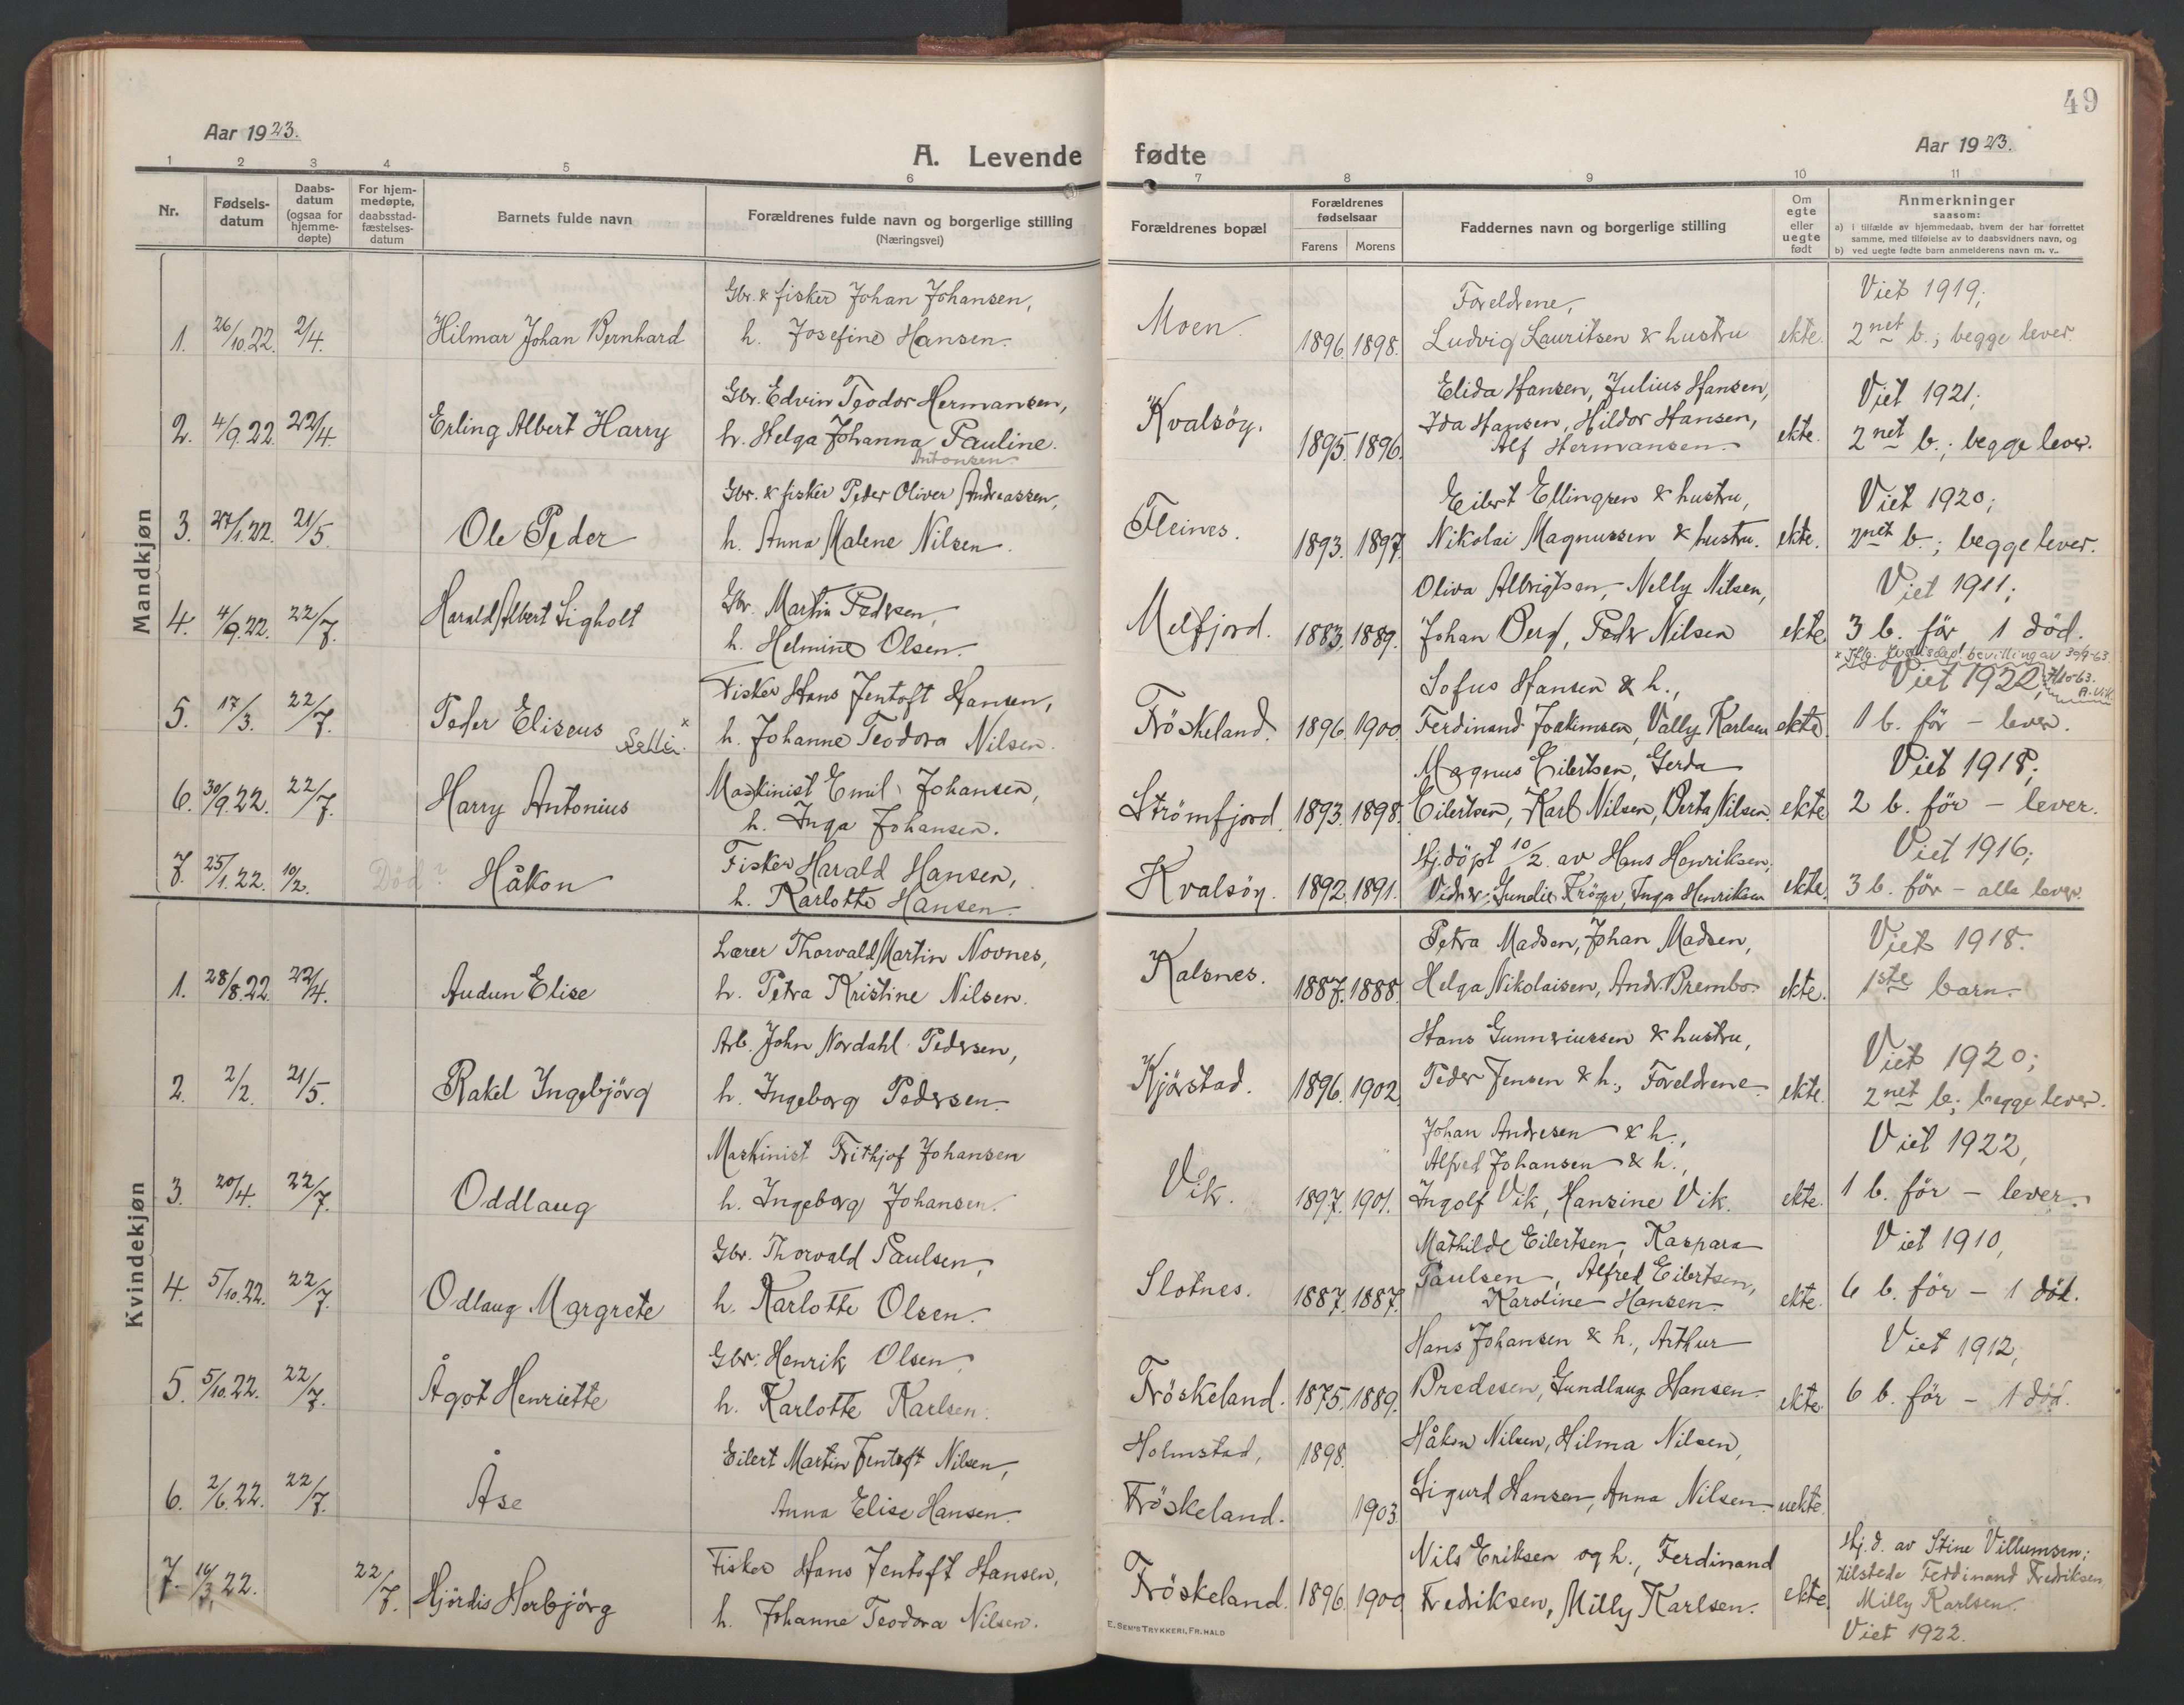 49
Aar 1923.
A. Levende fødte
Aar 1923.
1 2 3 4 5 6 7 8 9 10 11
Nr.
Fødsels-
datum
Daabs-
datum
(ogsaa for
hjemme-
døpte)
For hjem-
medøpte,
daabsstad-
fæstelses-
datum
Barnets fulde navn
Forældrenes fulde navn og borgerlige stilling
(Næringsvei)
Forældrenes bopæl
Forældrenes
fødselsaar
Farens Morens
Faddernes navn og borgerlige stilling
Om
egte
eller
uegte
født
Anmerkninger
saasom:
a) i tilfælde av hjemmedaab, hvem der har forrettet
samme, med tilføielse av to daabsvidners navn, og
b) ved uegte fødte barn anmelderens navn m. v..
Mandkjøn
1. 26/10 22. 2/4. Hilmar Johan Bernhard
Gbr. & fisker Johan Johansen,
h. Josefine Hansen.
Moen. 1896. 1898.
Foreldrene,
Ludvig Lauritsen & hustru
ekte.
Viet 1919;
2net b.; begge lever.
2. 4/9. 22. 22/4. Erling Albert Harry
Gbr. Edvin Teodor Hermansen,
h. Helga Johanna Pauline.
Antonsen
Kvalsöy. 1895. 1896.
Elida Hansen, Julius Hansen,
Ida Hansen, Hildor Hansen,
Alf Hermansen.
ekte.
Viet 1921;
2net b.; begge lever.
3. 27/1. 22. 21/5. Ole Peder
Gbr. & fisker Peder Oliver Andreassen,
h. Anna Malene Nilsen.
Fleines. 1893. 1897.
Eilert Ellingsen & hustru,
Nikolai Magnussen & hustru.
ekte.
Viet 1920;
2net b.; begge lever.
4. 4/9. 22. 22/7. Harald Albert Sigholt
Gbr. Martin Pedersen,
h. Helmine Olsen.
Melfjord. 1883. 1889.
Oliva Albrigtsen, Nelly Nilsen,
Johan Berg, Peder Nilsen
ekte
Viet 1911;
3 b. för, 1 död.
5. 17/3. 22/7. Peder Eliseus
Fisker Hans Jentoft Hansen,
h. Johanne Teodora Nilsen.
Fröskeland. 1896. 1900.
Sofus Hansen & h.,
Ferdinand Joakimsen, Vally Karlsen
ekte.
x Iflg. Justisdep. bevilling av 30/9-63.
Viet 1922,
A. Vik.
1 b. för – lever.
6. 30/9. 22. 22/7. Harry Antonius
Maskinist Emil Johansen,
h. Inga Johansen.
Strömfjord. 1893. 1898.
Magnus Eilertsen, Gerda
Eilertsen, Karl Nilsen, Berta Nilsen.
ekte
Viet 1918;
2 b. för – lever.
7. 25/1. 22. 10/2. Död? Håkon
Fisker Harald Hansen,
h. Karlotte Hansen.
Kvalsöy. 1892. 1891.
Hj.döpt 10/2. av Hans Henriksen;
Vidner: Gundie Kröger, Inga Henriksen
ekte.
Viet 1916;
3 b. för – alle lever.
Kvindekjøn
1. 28/8. 22. 22/4. Audun Elise
Lærer Thorvald Martin Novnes,
h. Petra Kristine Nilsen.
Kalsnes. 1887. 1888.
Petra Madsen, Johan Madsen,
Helga Nikolaisen, Andr. Brembo.
ekte.
Viet 1918.
1ste barn.
2. 2/2. 21/5. Rakel Ingebjörg
Arb. John Nordahl Pedersen,
h. Ingeborg Pedersen.
Kjörstad. 1896. 1902.
Hans Gunneriussen & hustru,
Peder Jensen & h., Foreldrene
ekte.
Viet 1920;
2net b.; begge lever.
3. 20/4. 22/7. Oddlaug
Maskinist Frithjof Johansen
h. Ingeborg Johansen.
Vik. 1897. 1901.
Johan Andresen & h.,
Alfred Johansen & h.,
Ingolf Vik, Hansine Vik.
ekte.
Viet 1922,
1 b. för – lever.
4. 5/10. 22. 22/7. Odlaug Margrete
Gbr. Thorvald Paulsen,
h. Karlotte Olsen.
Slotnes. 1887. 1887.
Mathilde Eilertsen, Kaspara
Paulsen, Alfred Eilertsen,
Karoline Hansen.
ekte.
Viet 1910,
6 b. för – 1 död.
5. 5/10. 22. 22/7. Ågot Henriette
Gbr. Henrik Olsen,
h. Karlotte Karlsen.
Fröskeland. 1875. 1889.
Hans Johansen & h., Arthur
Bredesen, Gundlaug Hansen.
ekte
Viet 1912,
6 b. för – 1 död.
6. 2/6. 22. 22/7. Åse
Eilert Martin Jentoft Nilsen,
Anna Elise Hansen.
Holmstad, 1898.
Fröskeland. 1903
Håkon Nilsen, Hilma Nilsen,
Sigurd Hansen, Anna Nilsen.
uekte.
7. 16/3. 22. 22/7. Hjördis Herbjörg
Fisker Hans Jentoft Hansen,
h. Johanne Teodora Nilsen.
Fröskeland. 1896. 1900.
Nils Eriksen og h., Ferdinand
Fredriksen, Milly Karlsen.
ekte.
Hj.d. av Stine Villumsen;
tilstede Ferdinand Fredriksen
Milly Karlsen.
Viet 1922.
E. SEM'S TRYKKERI, FR. HALD